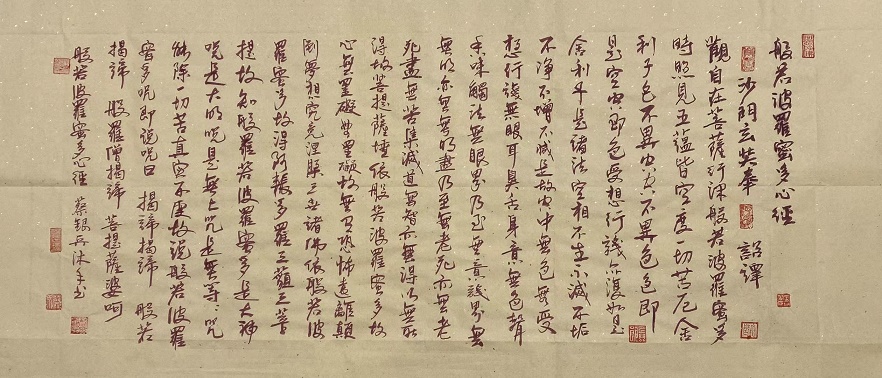 般若波羅蜜多心經
沙門玄奘奉 詔譯
觀自在菩薩行深般若波羅蜜多
時照見五蘊皆空度一切苦厄舍
利子色不異空空不異色色即
是空空即色受想行識亦復如是
舍利子是諸法空相不生不滅不垢
不净不增不減是故空中無色無受
想行識無眼耳鼻舌身意無色聲
香味觸法無眼界乃至無意識界無
無明亦無無明盡乃至無老死亦無老
死盡無苦集滅道無智亦無得以無所
得故菩提薩埵依般若波羅蜜多故
心無罣礙無罣礙故無有恐怖遠離顛
倒夢想究竟涅槃三世諸佛依般若波
羅蜜多故得阿耨多羅三藐三菩
提故知般羅若波羅蜜多是大神
咒是大明咒是無上咒是無等〻咒
能除一切苦真實不虛故說般若波羅
蜜多咒即說咒曰 揭諦揭諦 般若
揭諦 般羅僧揭諦 菩提薩婆呵
般若波羅蜜多心經 蔡銀兵沐手書